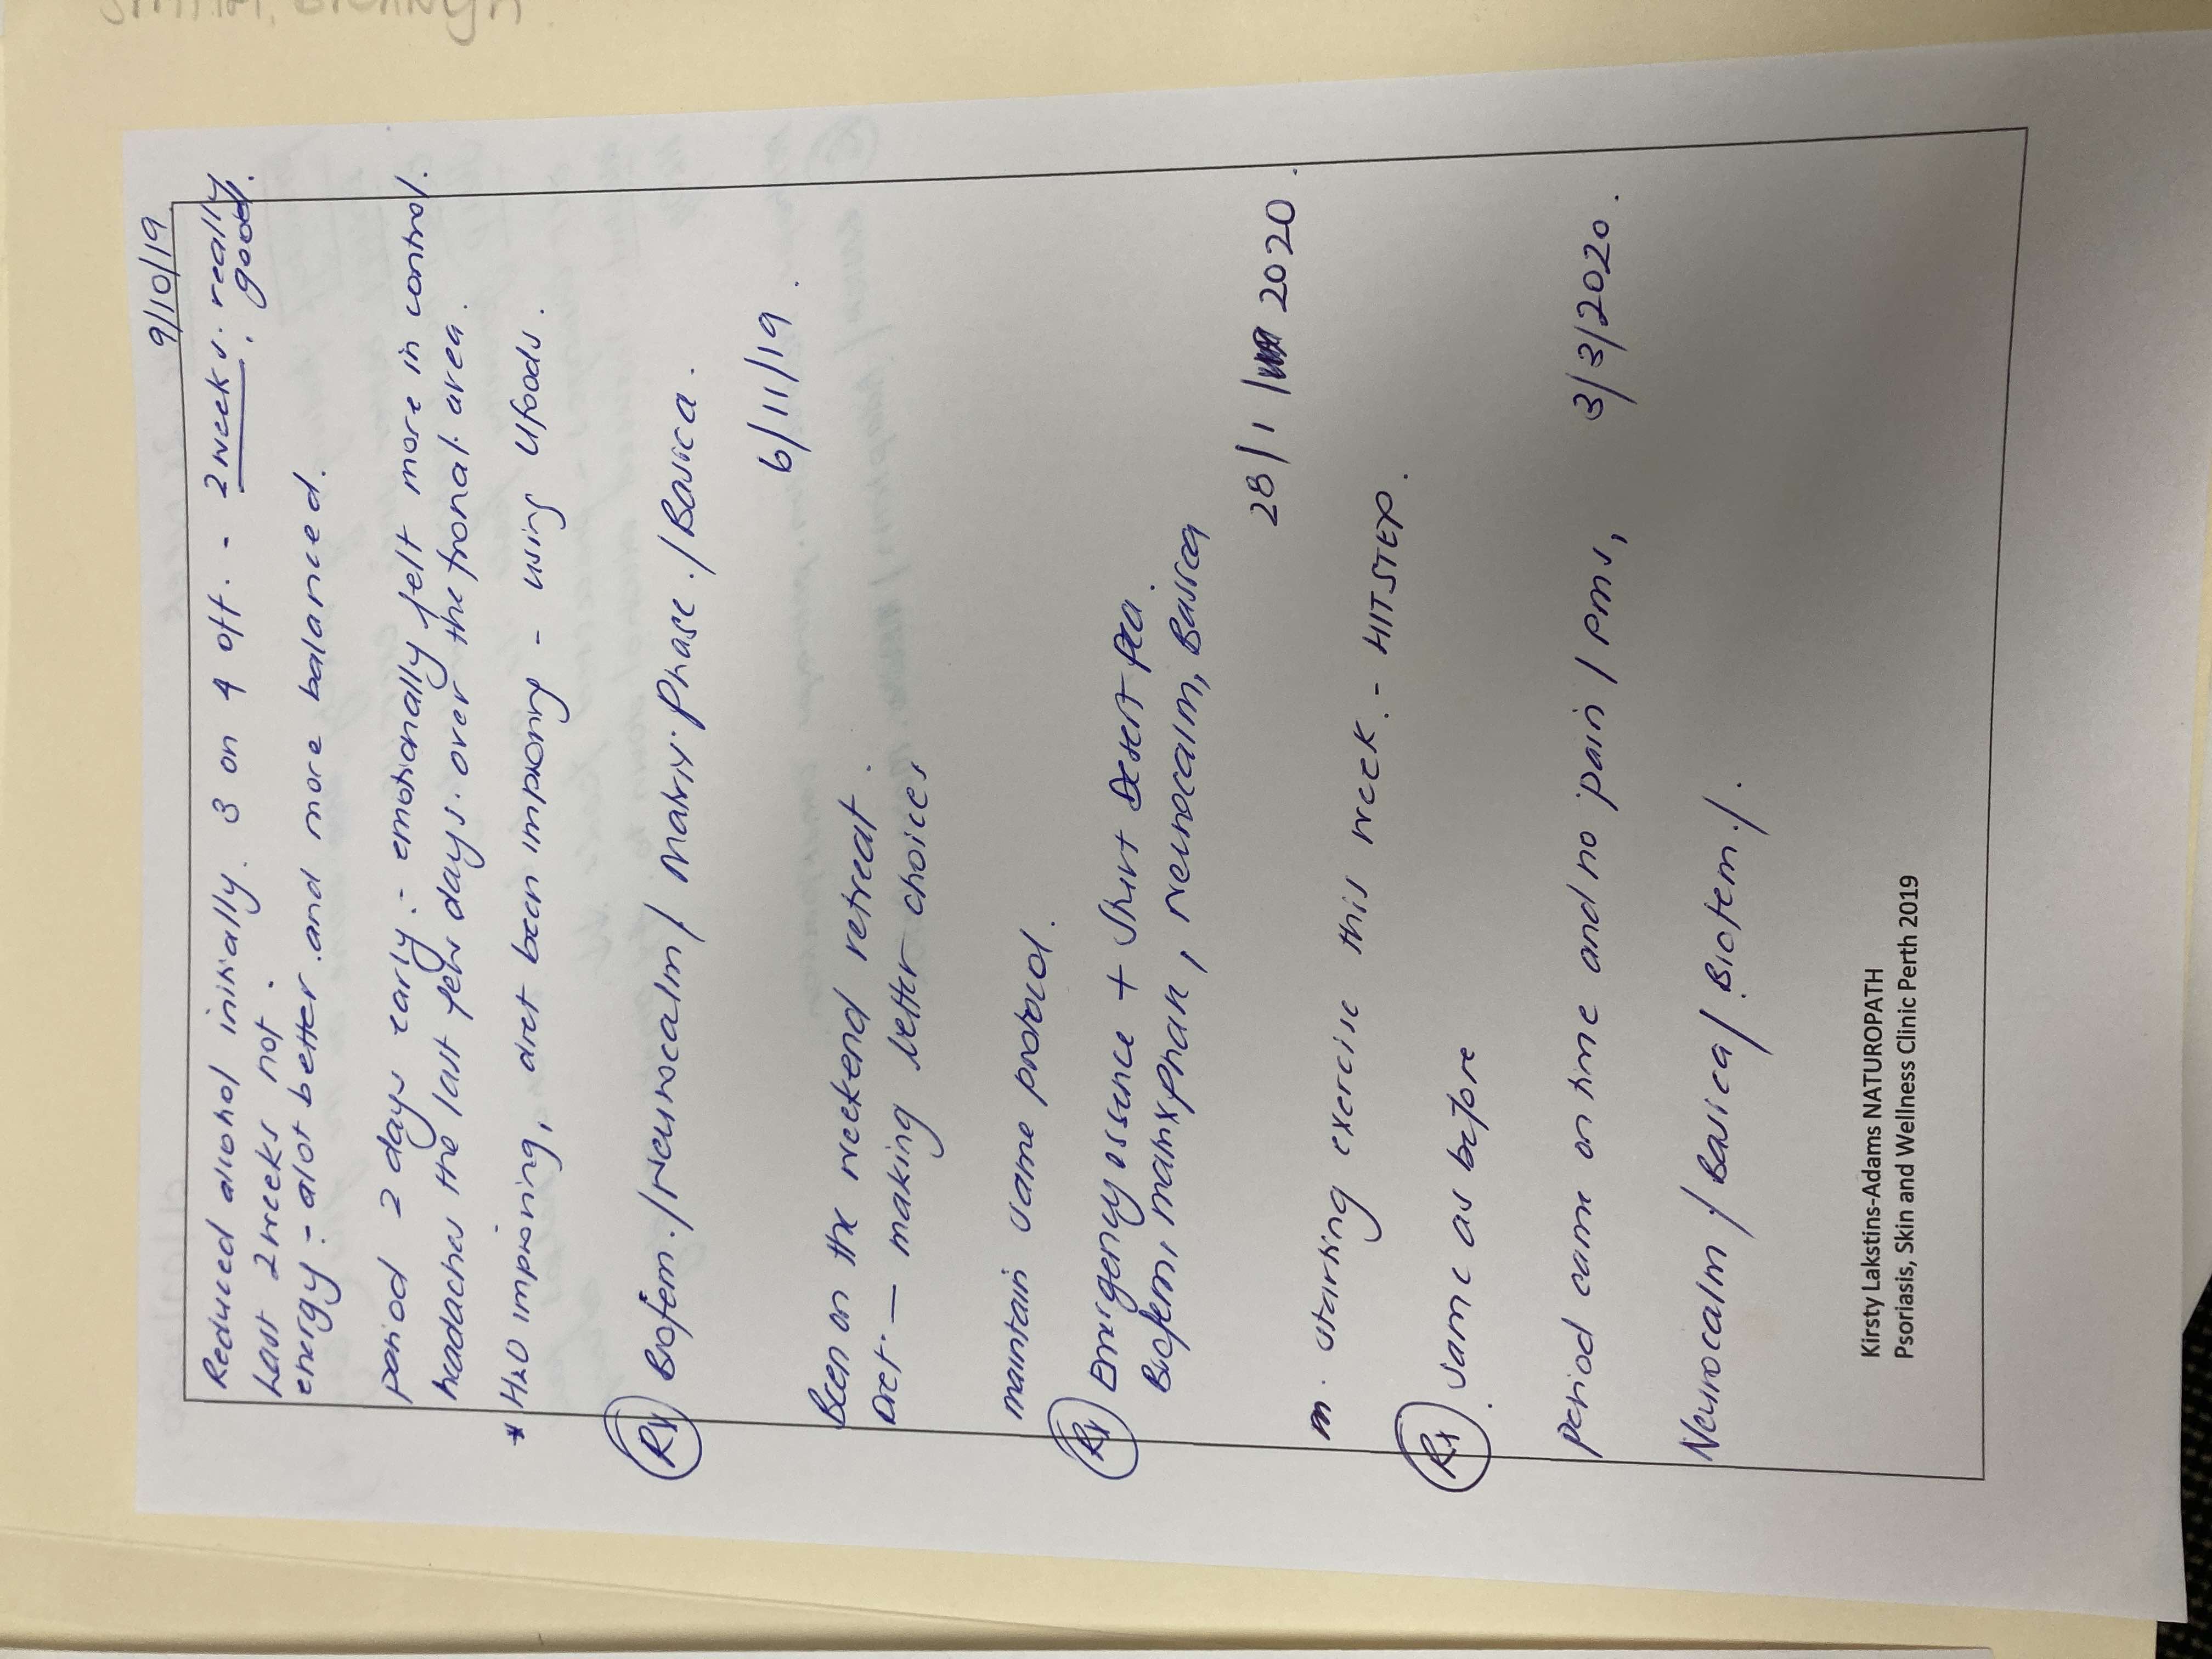 9/10/19
Reduced alcohol initially. 3 on 4 off. - 2 weeks. really
Last 2 weeks not. good.
energy - alot better and more balanced.
period 2 days early - emotionally felt more in control.
headaches the last few days. over the fronal area.
* H2O improving, diet been improving - using Ufoods.
Rx Biofem./neurocalm/ Matrix. Phase./Basica.
6/11/19.
Been on the weekend retreat.
Diet - making better choices
maintain same protocol.
Rx Emergency essence + Sturt Desert pea.
Biofem, matrixphase, neurocalm, Basica
28/1/ 2020.
starting exercise this week. - HITSTEP.
Rx same as before
3/3/2020.
Period came on time and no pain / pms,
Neurocalm / Basica / Biofem./.
Kirsty Lakstins-Adams NATUROPATH
Psoriasis, Skin and Wellness Clinic Perth 2019